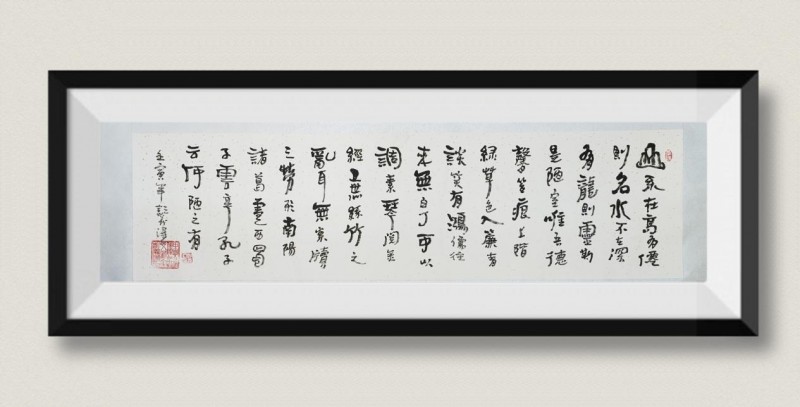 山不在高有僊
則名水不在深
有龍則靈斯
是陋室唯吾德
馨苔痕上階
綠草色入簾青
談笑有鴻儒往
来無白丁可以
調素琴閱金
經無絲竹之
亂耳無案牘
之勞形南陽
諸葛廬西蜀
子雲亭孔子
云何陋之有
壬寅年